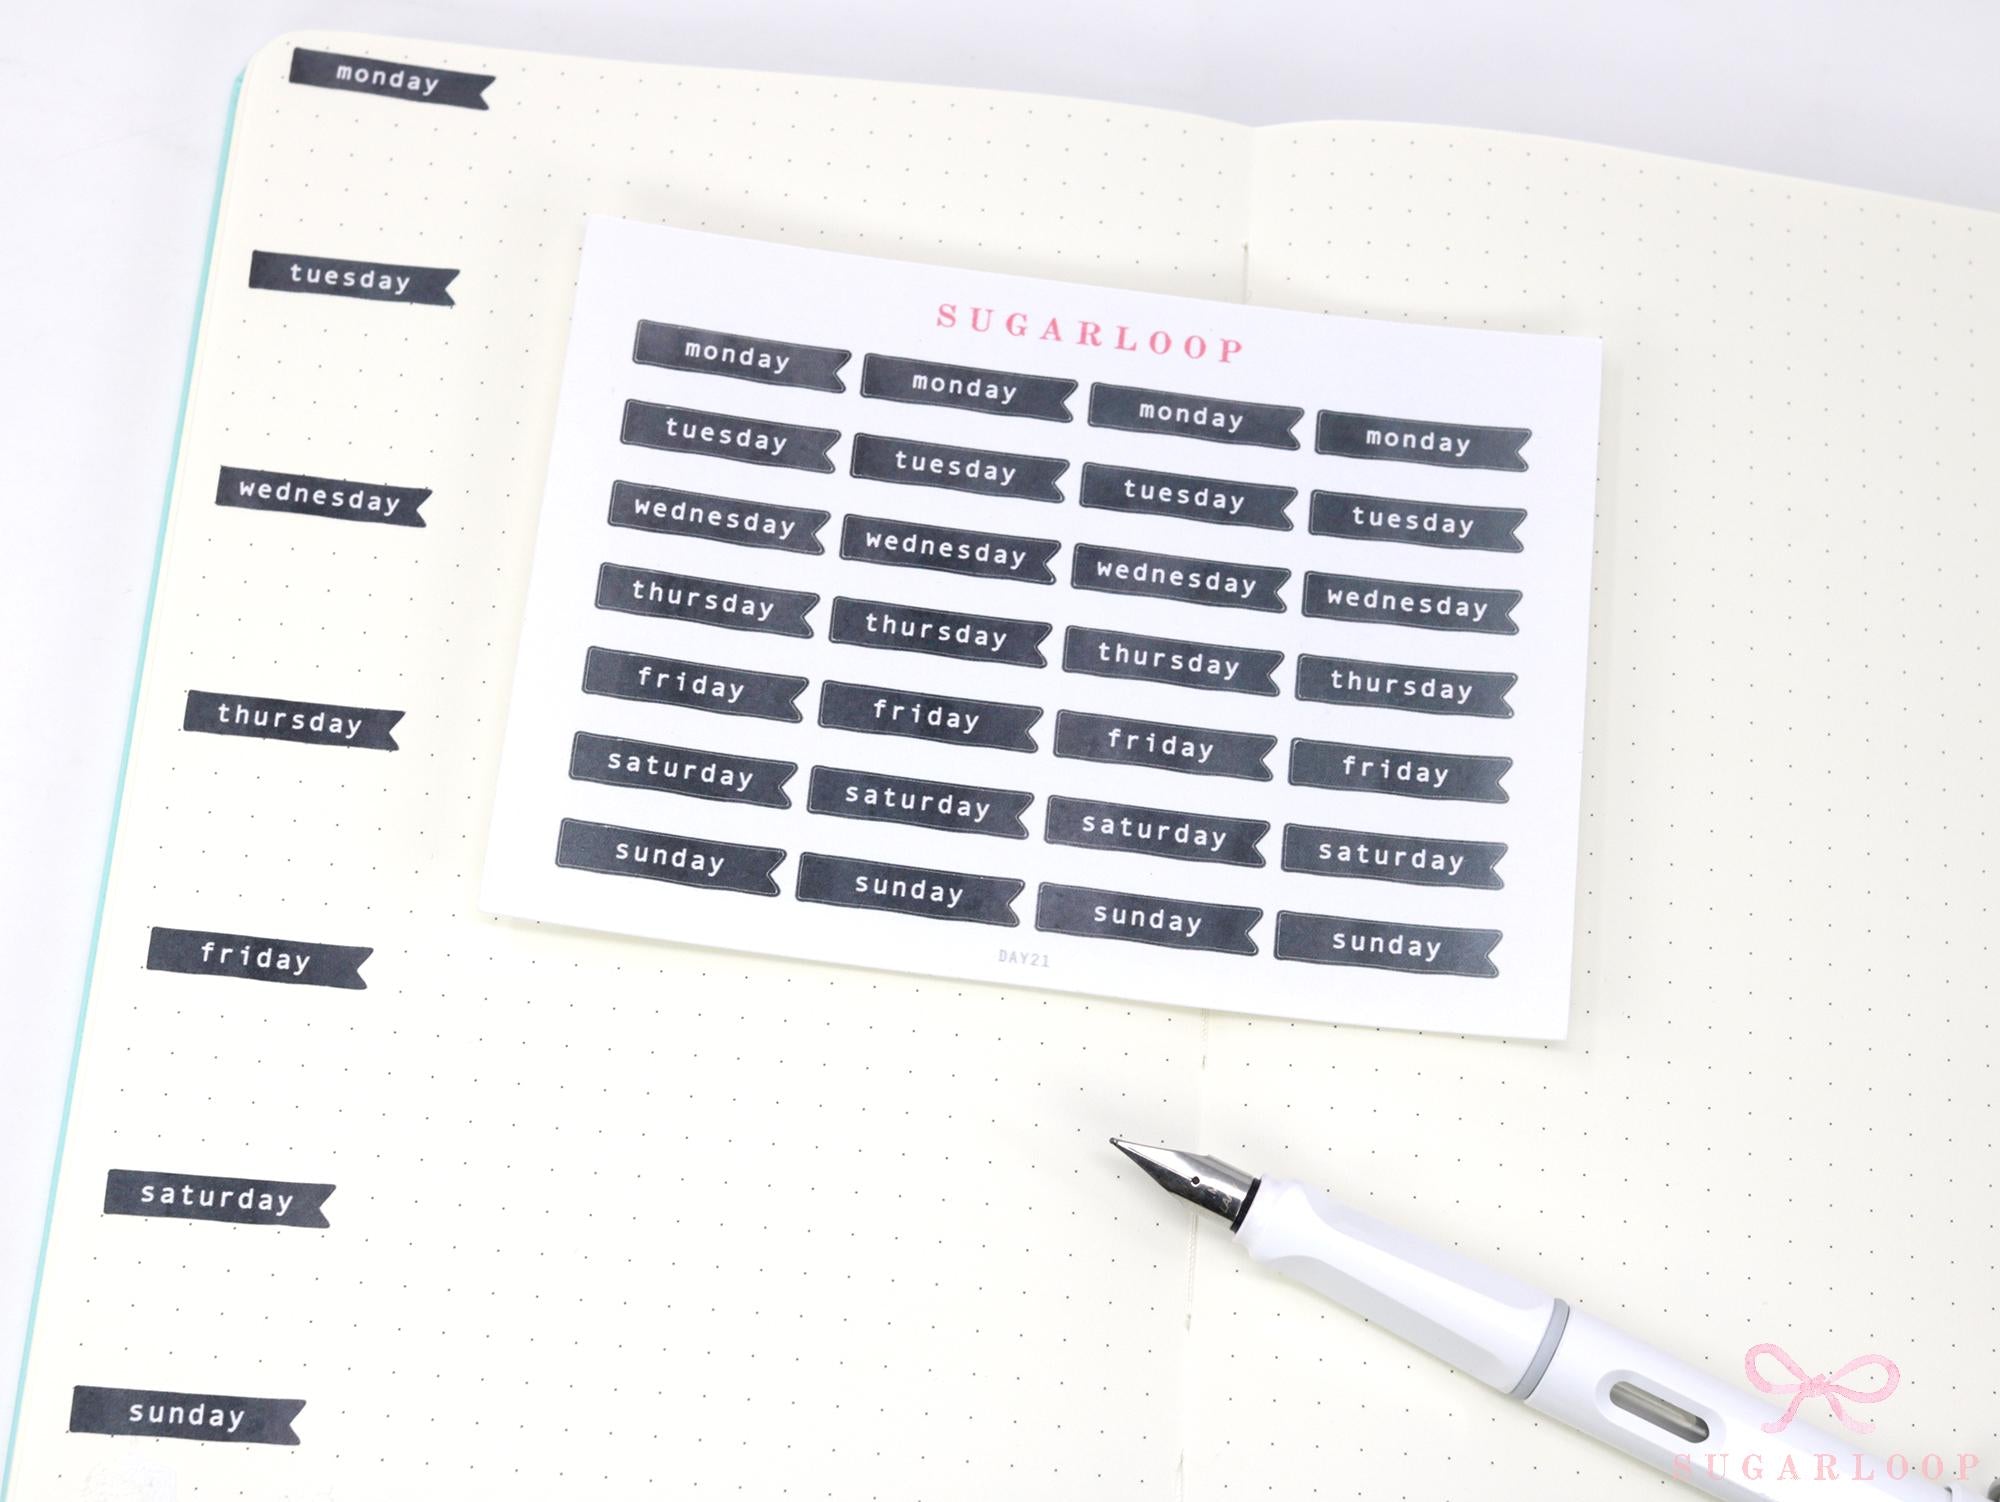 monday
tuesday
wednesday
thursday
friday
saturday
sunday
SUGARLOOP
monday monday monday monday
tuesday tuesday tuesday tuesday
wednesday wednesday wednesday wednesday
thursday thursday thursday thursday
friday friday friday friday
saturday saturday saturday saturday
sunday sunday sunday sunday
DAY21
SUGARLOOP